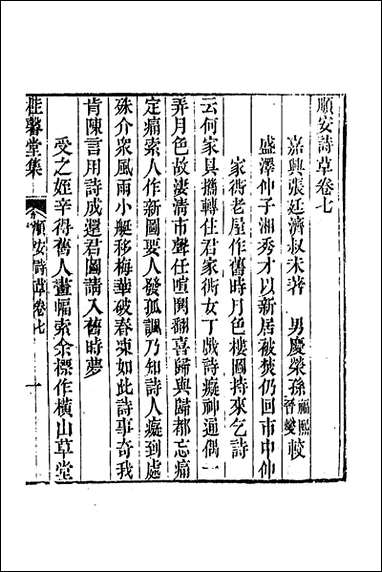 順安詩草卷七
嘉興張廷濟叔未著　男慶榮孫福熙晉燮校
盛澤仲子湘秀才以新居被焚仍回市中仲
家衖老屋作舊時月色樓圖持來乞詩
云何家具攜轉住君家衖女丁戲詩癡神逼偶一
弄月色故淒清市聲任喧鬨翻喜歸與歸都忘痛
定痛索人作新圖要人發孤諷乃知詩人癡到處
殊介衆風雨小艇移梅華破春凍如此詩事奇我
肯陳言用詩成還君圖請入舊時夢
受之姪辛得舊人畫幅索余標作橫山草堂
桂馨堂集
順安詩草卷七
一